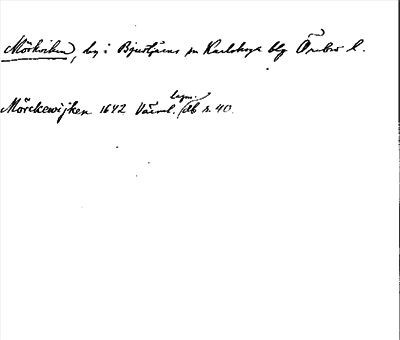 Mörkviken, by i Bjurtjärns sn Karlskoga blg Örebro l.
lagm.
Mörckewijken 1642 Värml. db s. 40.